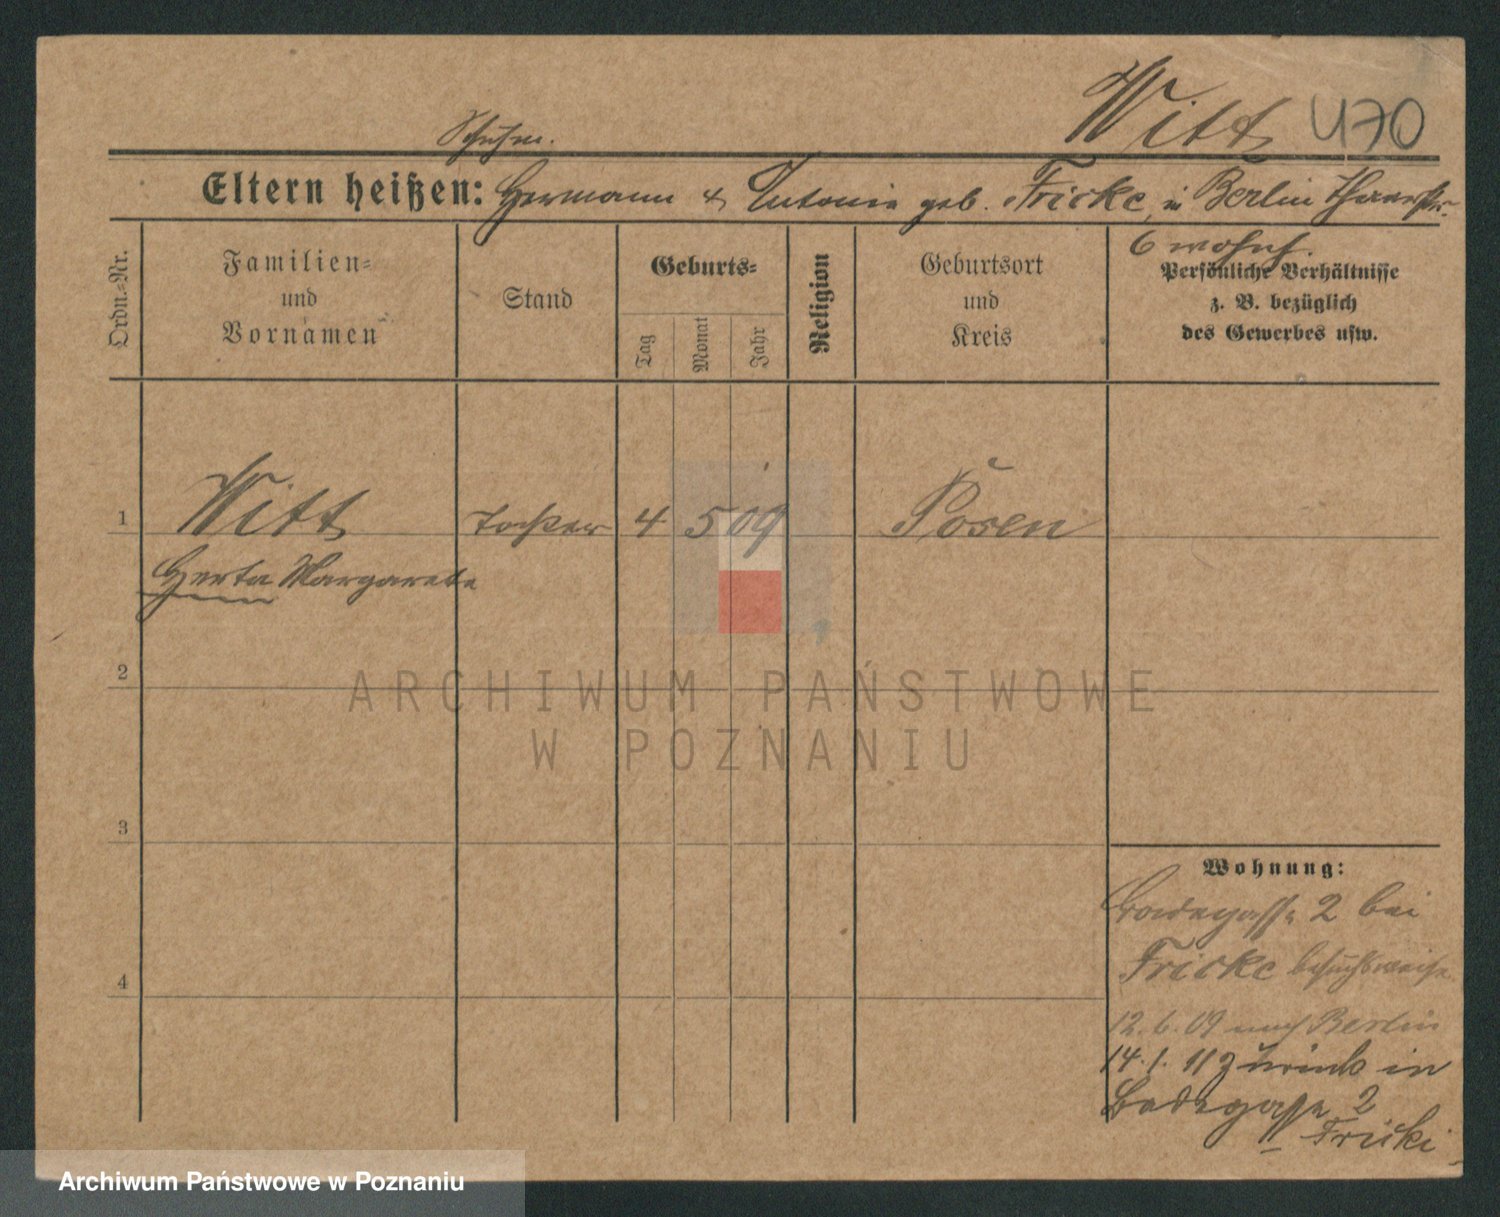 Witt 470
Schuhm.
Eltern heißen: Hermann & Antonie geb. Fricke, in Berlin
6 wohnh.
Ordn.-Nr.
Familien-
und
Vornamen
Stand
Geburts-
Tag
Monat
Jahr
Religion
Geburtsort
und
Kreis
Persönliche Verhältnisse
z. B. bezüglich
des Gewerbes usw.
1 Witt Tochter 4 5 09 Posen
Herta Margarete
2
3
4
Wohnung:
Badegasse 2 bei
Fricke besuchsweise
12.6.09 nach Berlin
14.1.11 zurück in
Badegasse 2
Fricke
ARCHIWUM PAŃSTWOWE
W POZNANIU
Archiwum Państwowe w Poznaniu